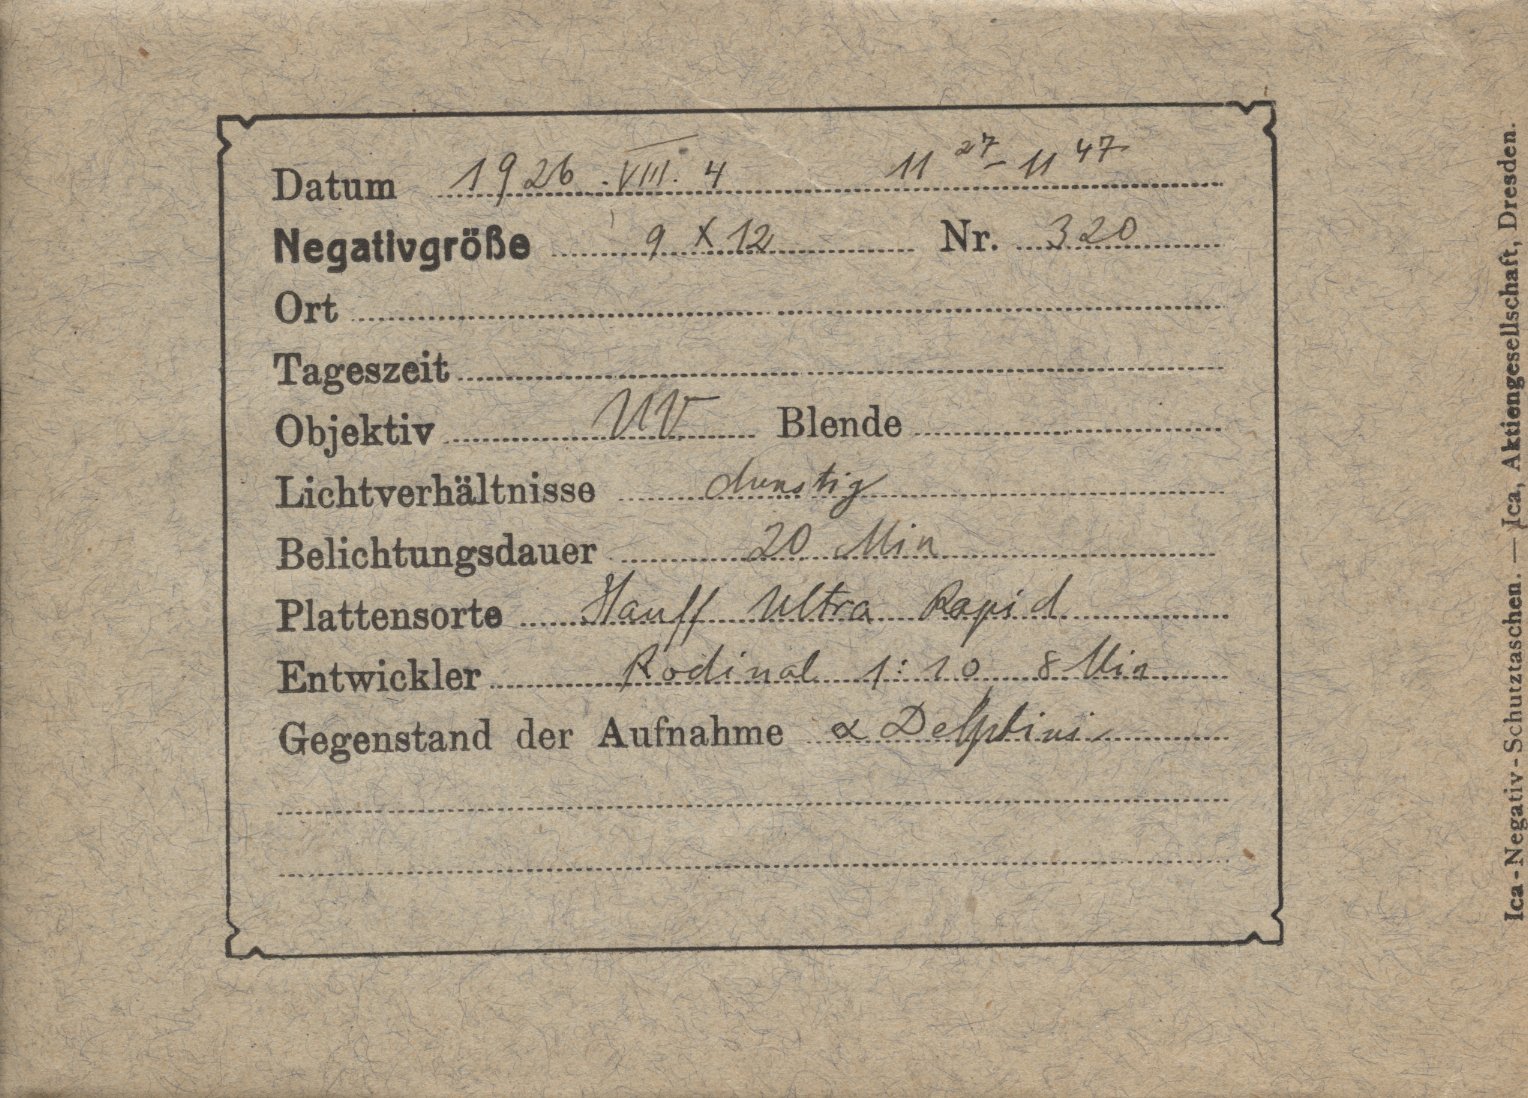 Datum 1926. VIII. 4 11 27 - 11 47
Negativgröße 9 X 12 Nr. 320
Ort
Tageszeit
Objektiv UV Blende
Lichtverhältnisse dunstig
Belichtungsdauer 20 Min
Plattensorte Hauff Ultra Rapid
Entwickler Rodinal 1:10 8 Min
Gegenstand der Aufnahme α Delphini
Ica-Negativ-Schutztaschen. — Ica, Aktiengesellschaft, Dresden.